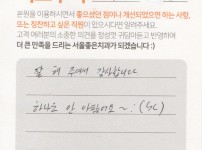 본원을 이용하시면서 좋으셨던 점이나 개선되었으면 하는 사항,
또는 칭찬하고 싶은 직원이 있으시다면 알려주세요.
고객 여러분의 소중한 의견을 정성껏 귀담아듣고 반영하여
더 큰 만족을 드리는 서울좋은치과가 되겠습니다 :)
잘 해 주셔서 감사합니다
하나도 안 아팠어요 ~ :